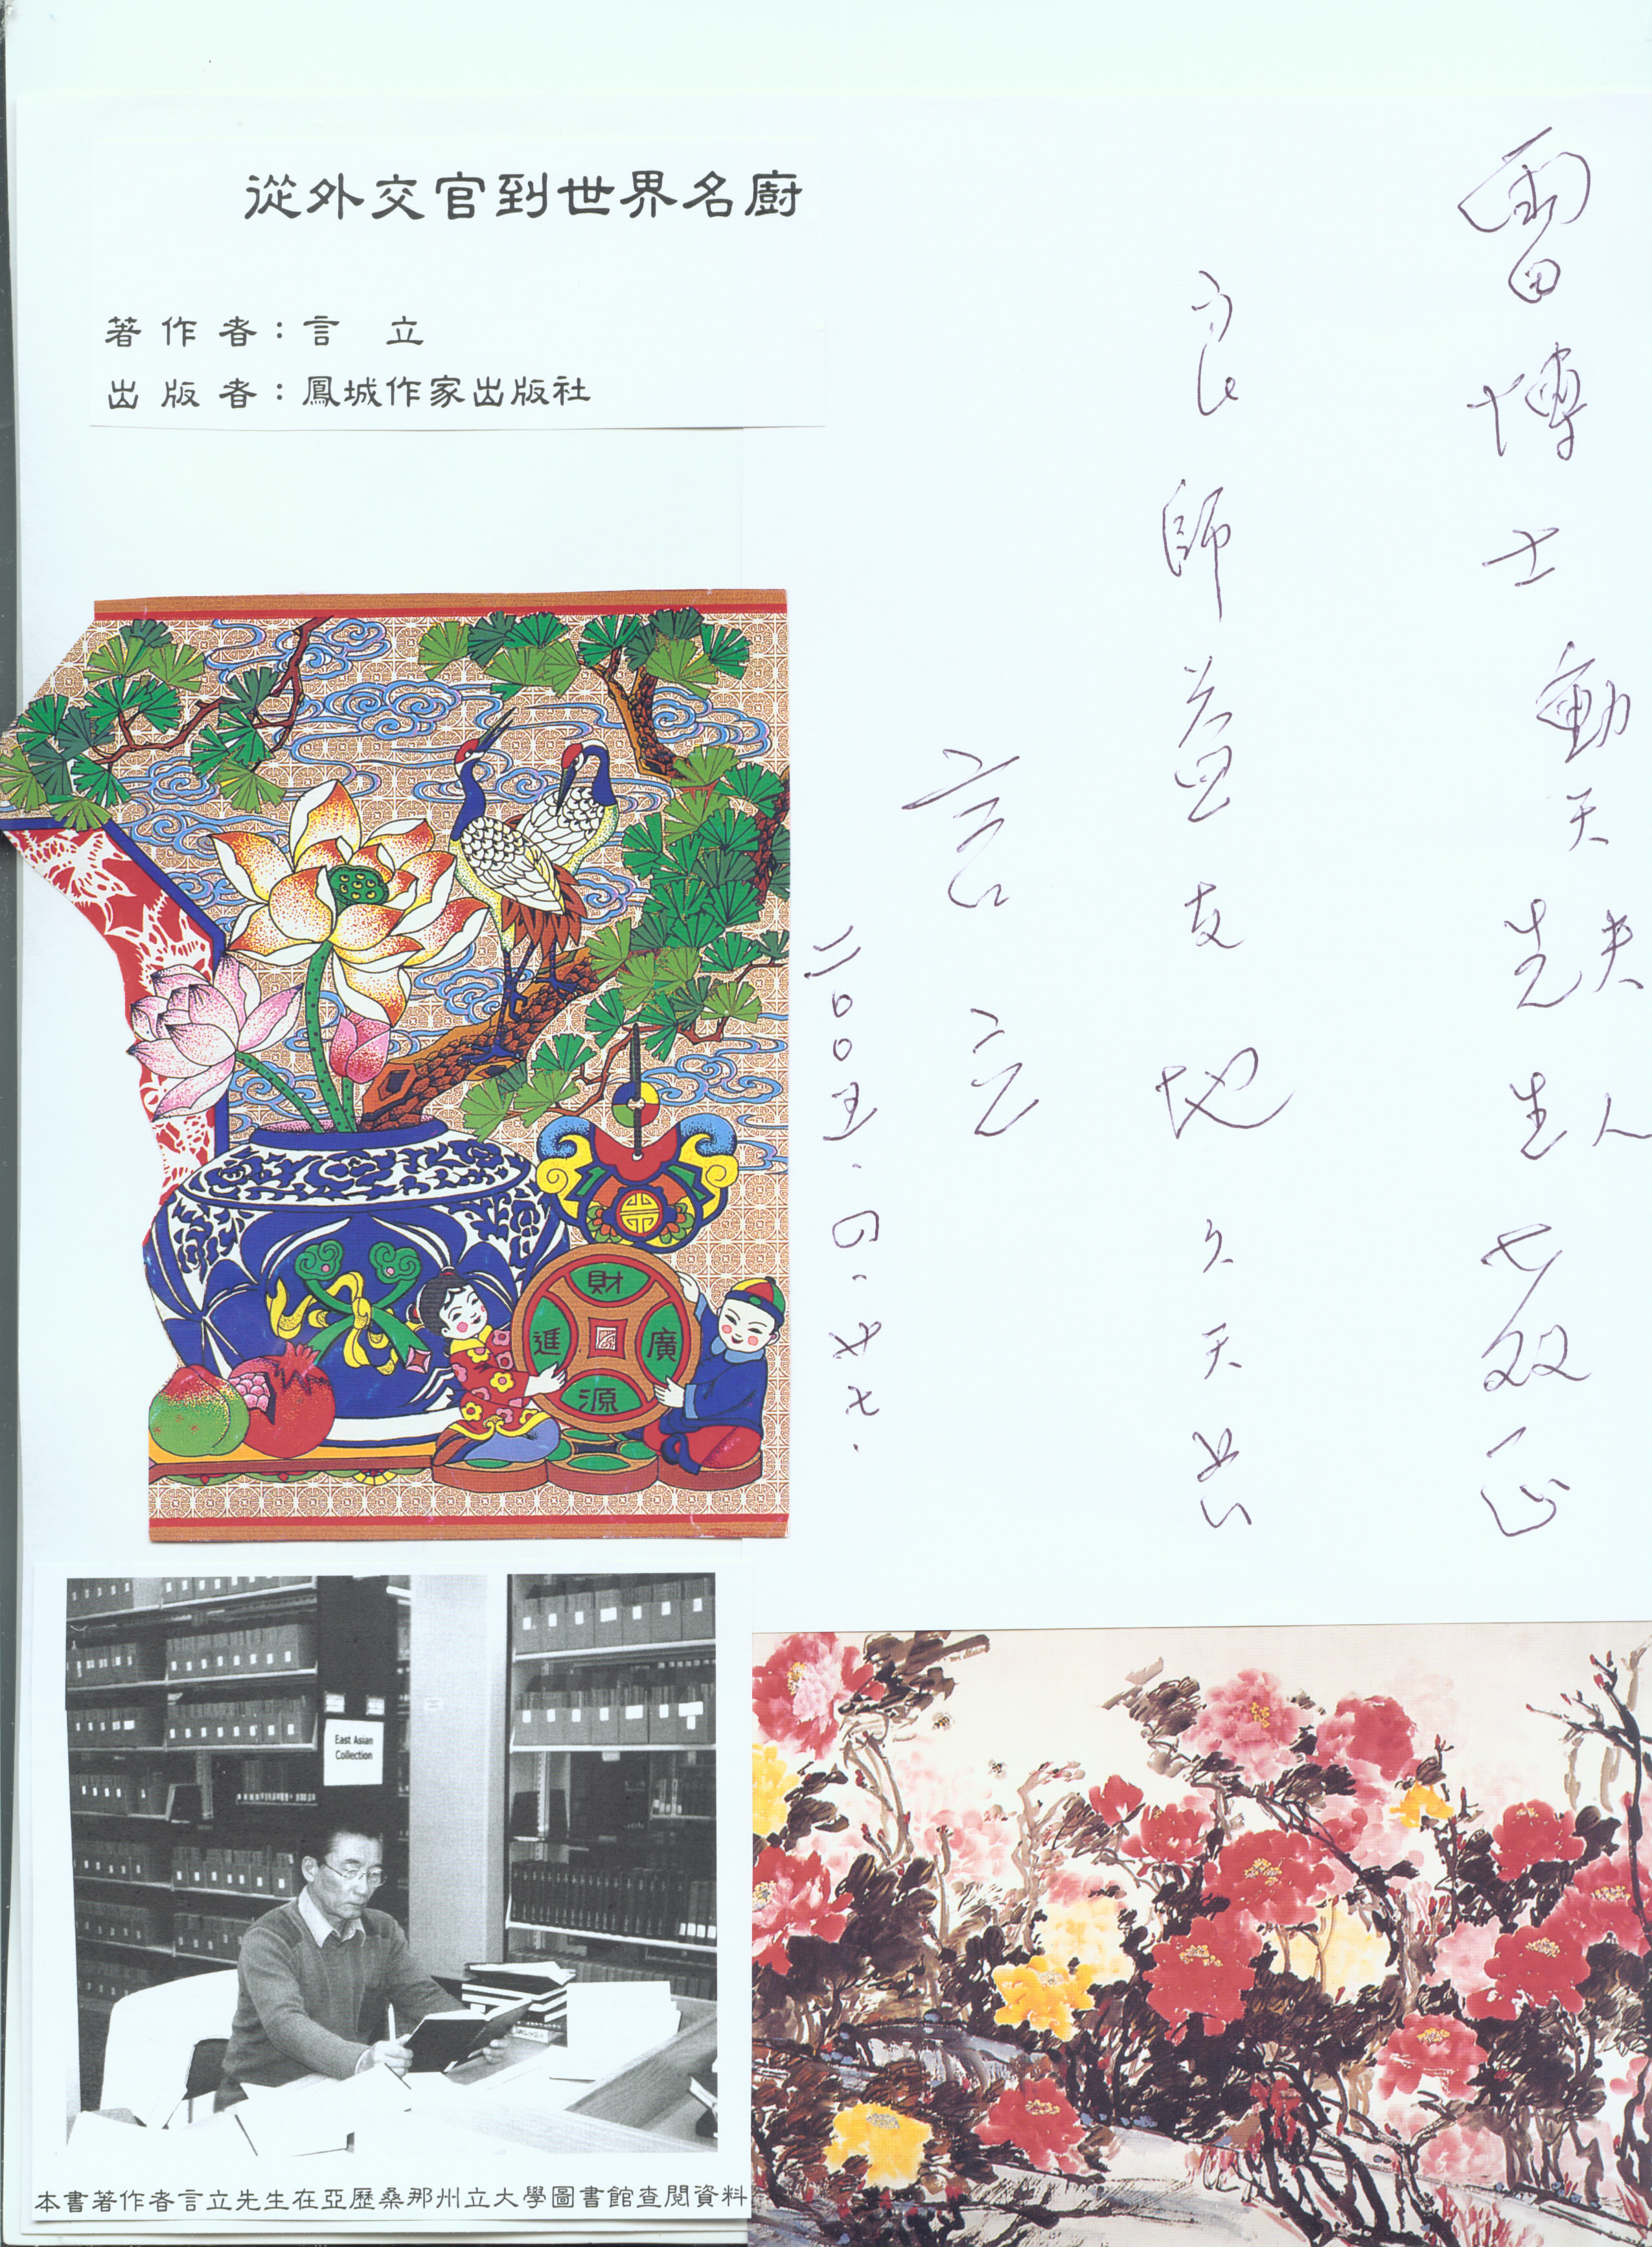 從外交官到世界名廚
著作者：言　立
出版者：鳳城作家出版社
雷博士
天
先生
夫人
正
良師益友地久天長
言立
二00五.四.廿七.
財
進 廣
源
East Asian
Collection
本書著作者言立先生在亞歷桑那州立大學圖書館查閱資料